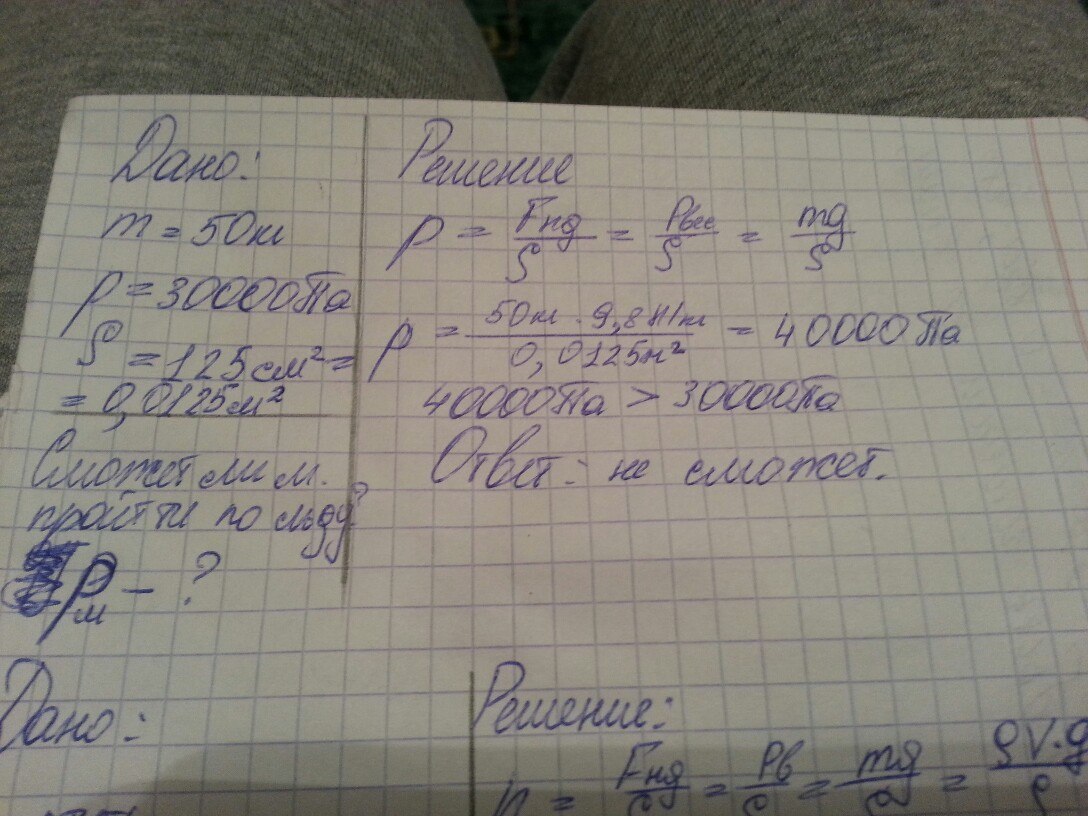 Дано:
m = 50кг
p = 30000Па
S = 125см² =
= 0,0125м²
Сможет ли м.
пройти по льду?
pм - ?
Решение
p = Fнд/S = Pвес/S = mg/S
p = 50кг · 9,8Н/кг / 0,0125м² = 40000Па
40000Па > 30000Па
Ответ: не сможет.
Дано:
Решение:
p = Fнд/S = Pв/S = mg/S = ρV·g/S